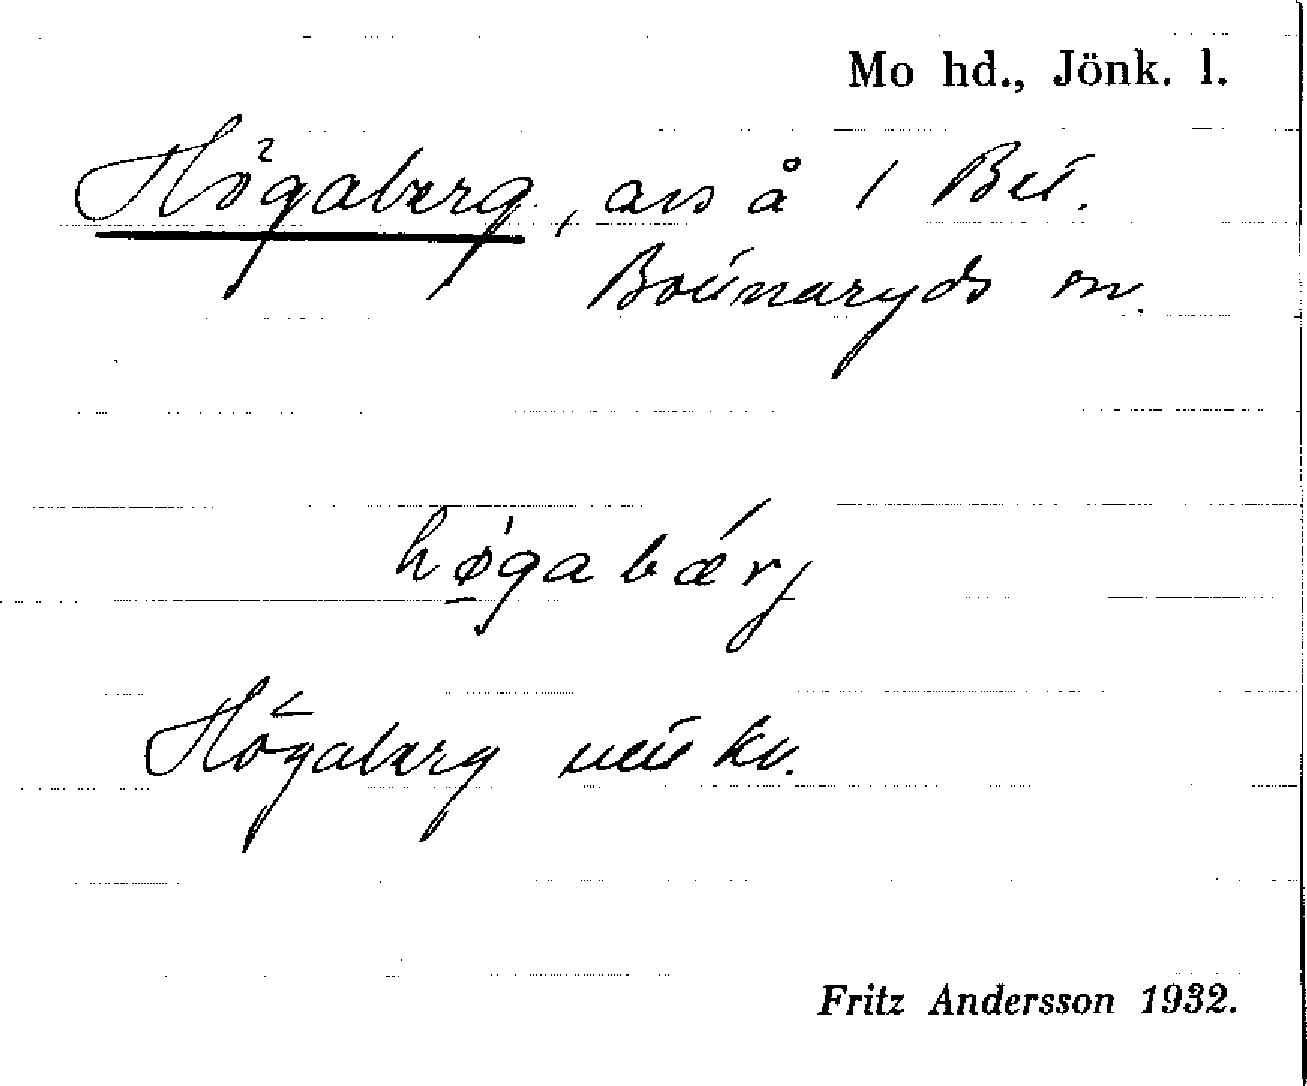 Mo hd., Jönk. l.
Högaberg, avs å 1 Bei.
Boünaryds sn.
hǿ̱gabǽrj
Högaberg ueü kv.
Fritz Andersson 1932.